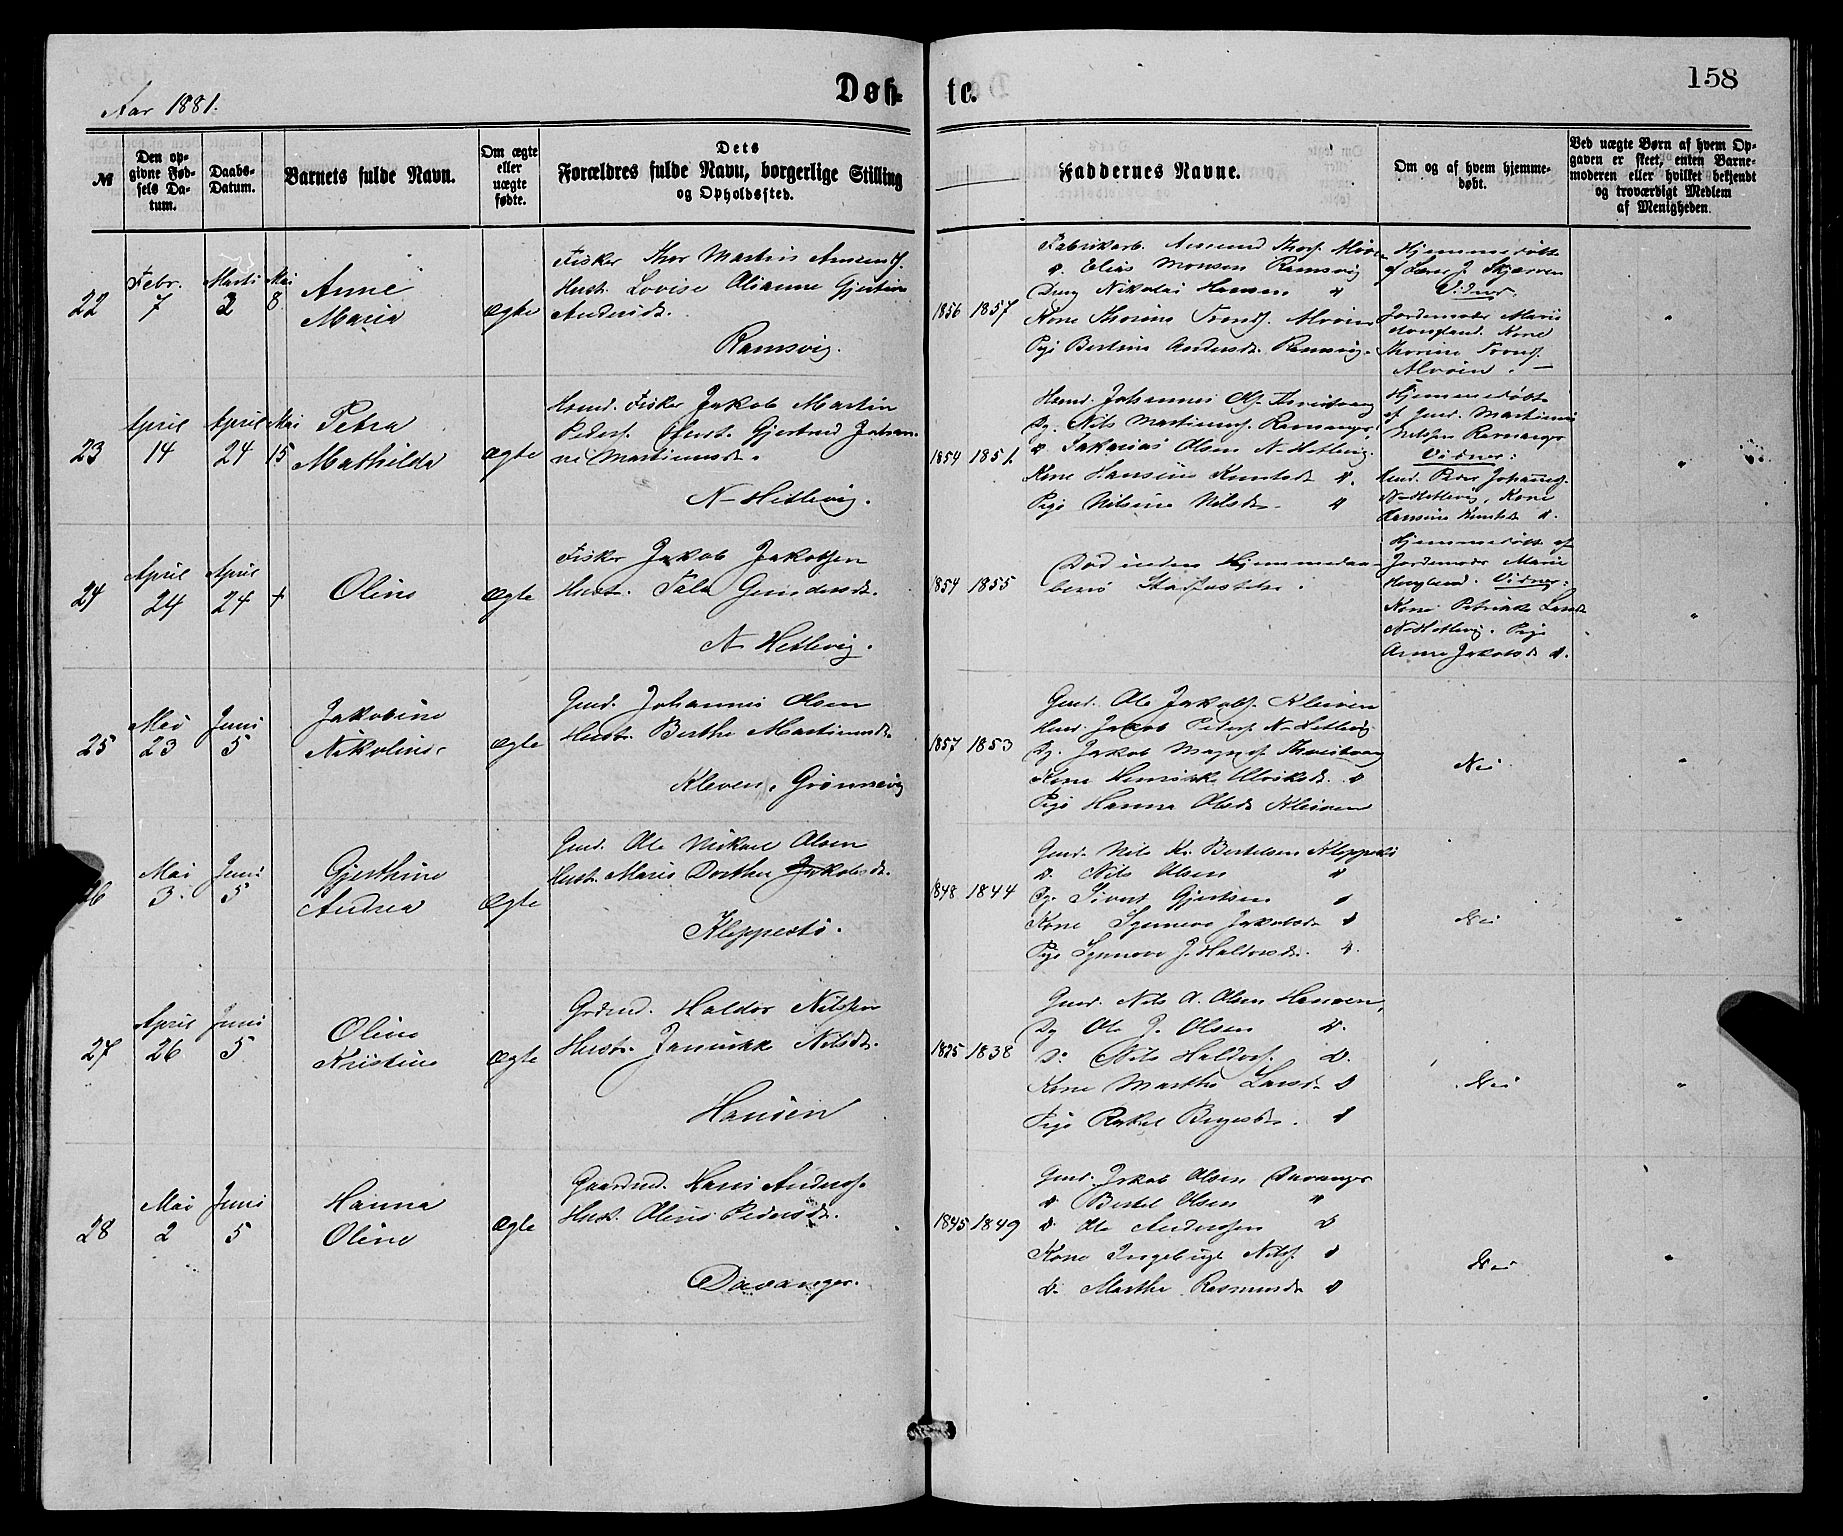 158
Aar 1881.
Døb-
te.
№
Den op-
givne Fød-
sels Da-
tum.
Daabs-
Datum.
Barnets fulde Navn.
Om ægte
eller
uægte
fødte.
Dets
Forældres fulde Navn, borgerlige Stilling
og Opholdssted.
Faddernes Navne.
Om og af hvem hjemme-
døbt.
Ved uægte Børn af hvem Op-
gaven er skeet, enten Barne-
moderen eller hvilket bekjendt
og troværdigt Medlem
af Menigheden.
22
Febr.
7
Marts
2
Mai
8
Anne
Maria
ægte
Fisker Thor Martin
Hust. Lovise Olianne
Andersdt.
Ramsvig.
1856 1857
Fabrikarb.
D. Elias Monsen Ramsvig
Nikolai Hansen
Kone Thorine
Pige Bertine Andersdt. Ramsvig.
Hjemmedøbt
af Lærer J.
Vidner:
Jordemoder Marie
Kone
Thorine
23
April
14
April
24
Mai
15
Petra
Mathilde
ægte
Fisker Jakob Martin
Peders. Hust. Gjertrud Johan-
ne Martinusdt.
N-Hetlevig.
1854 1851
Johannes
Nils Martinus
Olsen N-Hetlevig.
Kone Hansine Knutsdt. D.
Pige Nilsine Nilsdt.
Hjemmedøbt
af Gmd. Martinus
Nilssen
Vidner:
Johannes
N-Hetlevig, Kone
Hansine Knutsdt. D.
24
April
24
April
24
+
Oline
ægte
Fisker Jakob Jakobsen
Hust.
N-Hetlevig.
1854 1855
Død inden Hjemmedaa-
bens Stadfæstelse.
Hjemmedøbt af
Jordemoder Marie
Vidner:
Kone Petrikke Larsdt.
N-Hetlevig. Pige
Anna Jakobsdt. D.
25
Mai
23
Juni
5
Jakobine
Nikoline
ægte
Gmd. Johannes Olsen
Hustr. Berthe Martinusdt.
Kleven, Grønnevig
1857 1853
Gmd. Ole Jakobs. Kleiven
Jakob Peders. N-Hetlevig
Jakob
Kone Henrikke
Pige Hanna Olsdt. Kleiven
Nei
26
Mai
3
Juni
5
Gjerthine
Andrea
ægte
Gmd. Ole Mikael Olsen
Hust. Marie Dorthea Jakobsdt.
Kleppestø.
1848 1844
Gmd. Nils Kr. Bertelsen Kleppestø
D. Nils Olsen
Sivert Gjertsen
Kone Synneve Jakobsdt.
Pige Synneve J. Haldorsdt.
Nei
27
April
26
Juni
5
Oline
Kristine
ægte
Grdmd. Haldor Nilssen
Hust. Jannikke Nilsdt.
Hanøen
1825 1838
Gmd. Nils A. Olsen Hanøen,
Ole J. Olsen D.
Nils Haldors. D.
Kone Marthe Larsdt. D
Pige Rakel
Nei
28
Mai
2
Juni
5
Hanna
Oline
ægte
Gaardmd. Hans Anders.
Hust. Oline Pedersdt.
Davanger.
1845 1849
Gmd. Jakob Olsen Davanger
D. Bertel Olsen
D. Ole Anderssen D
Kone Ingeborg Nils.
D. Marthe Rasmusdt. D
Nei